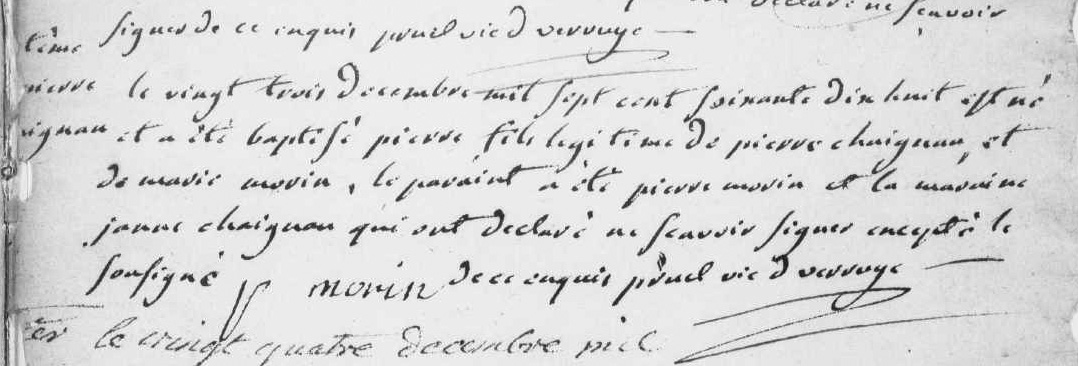 declaré ne scavoir
tême signer de ce enquis pruel vic d verruye
pierre le vingt trois decembre mil sept cent soixante dix huit est né
aignau et a été baptisé pierre fils legitime de pierre chaignau, et
de marie morin, le paraint a été pierre morin et la maraine
janne chaignau qui ont declaré ne scavoir signer excepté le
sousigné P morin de ce enquis pruel vic d verruye
le vingt quatre decembre mil